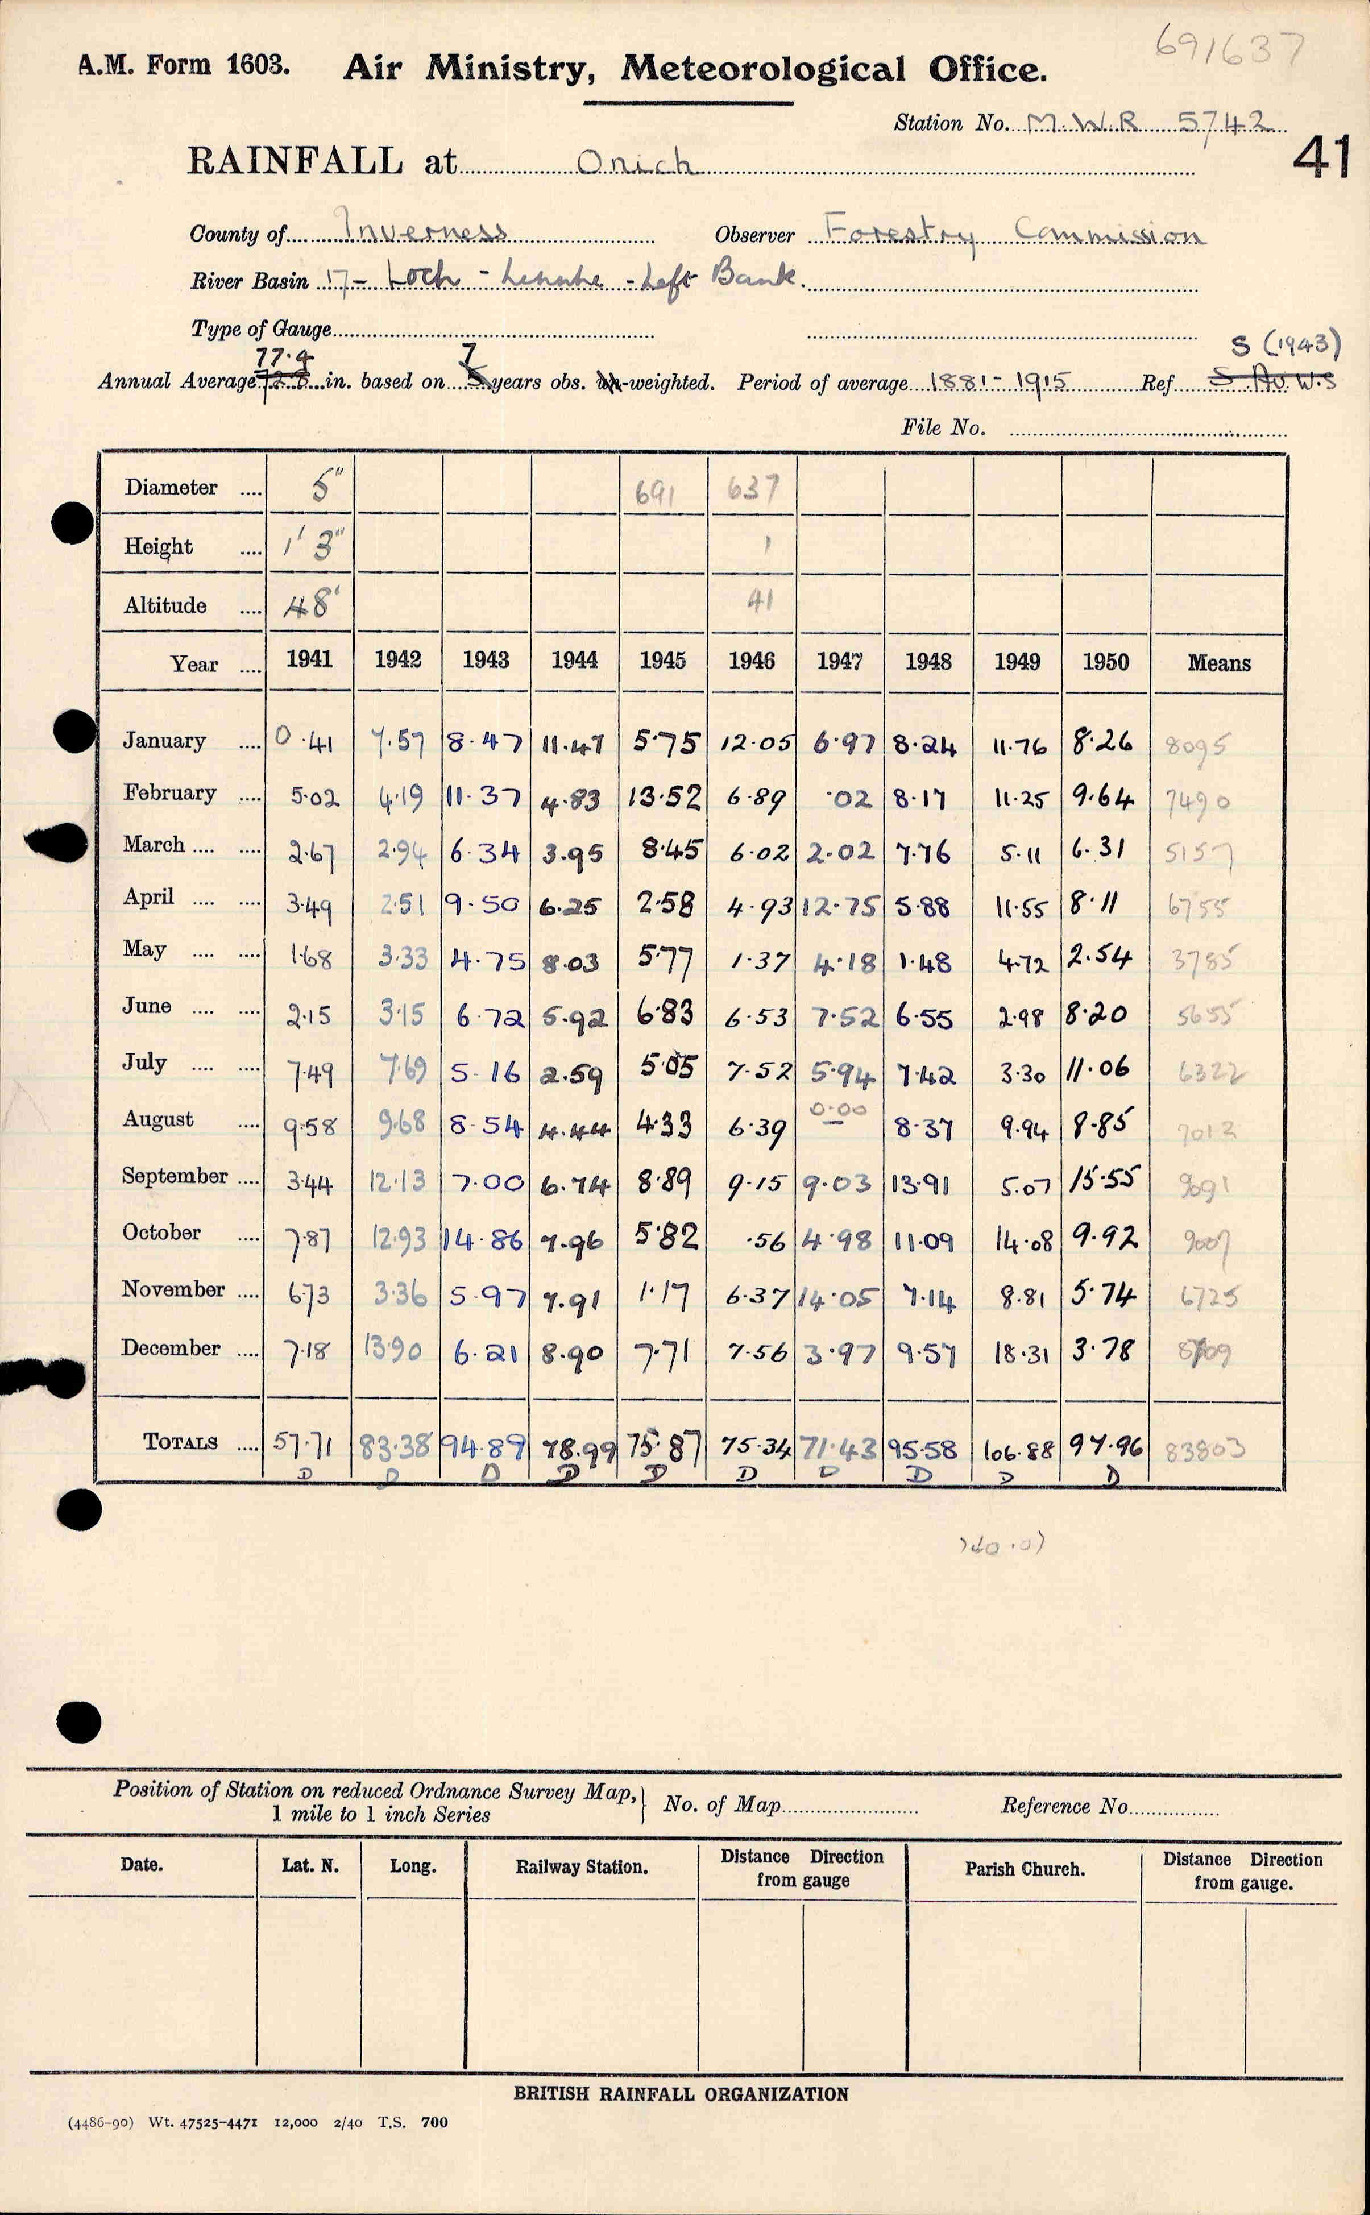 691637
A.M. Form 1603. Air Ministry, Meteorological Office.
Station No. M.W.R 5742
41
RAINFALL at Onich
County of Inverness Observer Forestry Commission
River Basin 17 - Loch - Linnhe - Left Bank.
Type of Gauge
77.4 7 S (1943)
Annual Average in. based on years obs. -weighted. Period of average 1881-1915 Ref S. Av. W.S
File No.
Diameter .... 5" 691 637
Height .... 1' 3" 1
Altitude .... 48' 41
Year .... 1941 1942 1943 1944 1945 1946 1947 1948 1949 1950 Means
January .... 0.41 7.57 8.47 11.47 5.75 12.05 6.97 8.24 11.76 8.26 8095
February .... 5.02 4.19 11.37 4.83 13.52 6.89 .02 8.17 11.25 9.64 7490
March .... .... 2.67 2.94 6.34 3.95 8.45 6.02 2.02 7.76 5.11 6.31 5157
April .... .... 3.49 2.51 9.50 6.25 2.58 4.93 12.75 5.88 11.55 8.11 6755
May .... .... 1.68 3.33 4.75 8.03 5.77 1.37 4.18 1.48 4.72 2.54 3785
June .... .... 2.15 3.15 6.72 5.92 6.83 6.53 7.52 6.55 2.98 8.20 5655
July .... .... 7.49 7.69 5.16 2.59 5.05 7.52 5.94 7.42 3.30 11.06 6322
August .... 9.58 9.68 8.54 4.44 4.33 6.39 0.00 8.37 9.94 8.85 7012
September .... 3.44 12.13 7.00 6.74 8.89 9.15 9.03 13.91 5.07 15.55 9091
October .... 7.87 12.93 14.86 7.96 5.82 .56 4.98 11.09 14.08 9.92 9007
November .... 6.73 3.36 5.97 7.91 1.17 6.37 14.05 7.14 8.81 5.74 6725
December .... 7.18 13.90 6.21 8.90 7.71 7.56 3.97 9.57 18.31 3.78 8709
TOTALS .... 57.71 83.38 94.89 78.99 75.87 75.34 71.43 95.58 106.88 97.96 83803
D D D D D D D D D D
Position of Station on reduced Ordnance Survey Map, No. of Map Reference No.
1 mile to 1 inch Series
Date. Lat. N. Long. Railway Station. Distance Direction from gauge Parish Church. Distance Direction from gauge.
BRITISH RAINFALL ORGANIZATION
(4486-90) Wt. 47525-4471 12,000 2/40 T.S. 700